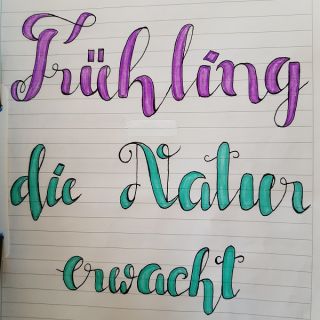 Frühling
die Natur
erwacht